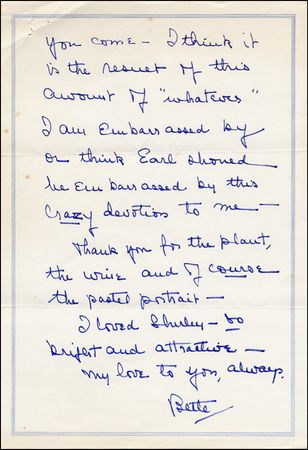 you come – I think it
is the result of this
amount of "whatever"
I am embarrassed by
or think Earl should
be embarrassed by this
crazy devotion to me –
Thank you for the plant,
the wine and of course
the pastel portrait –
I loved Shirley – so
bright and attractive –
my love to you, always.
Bette